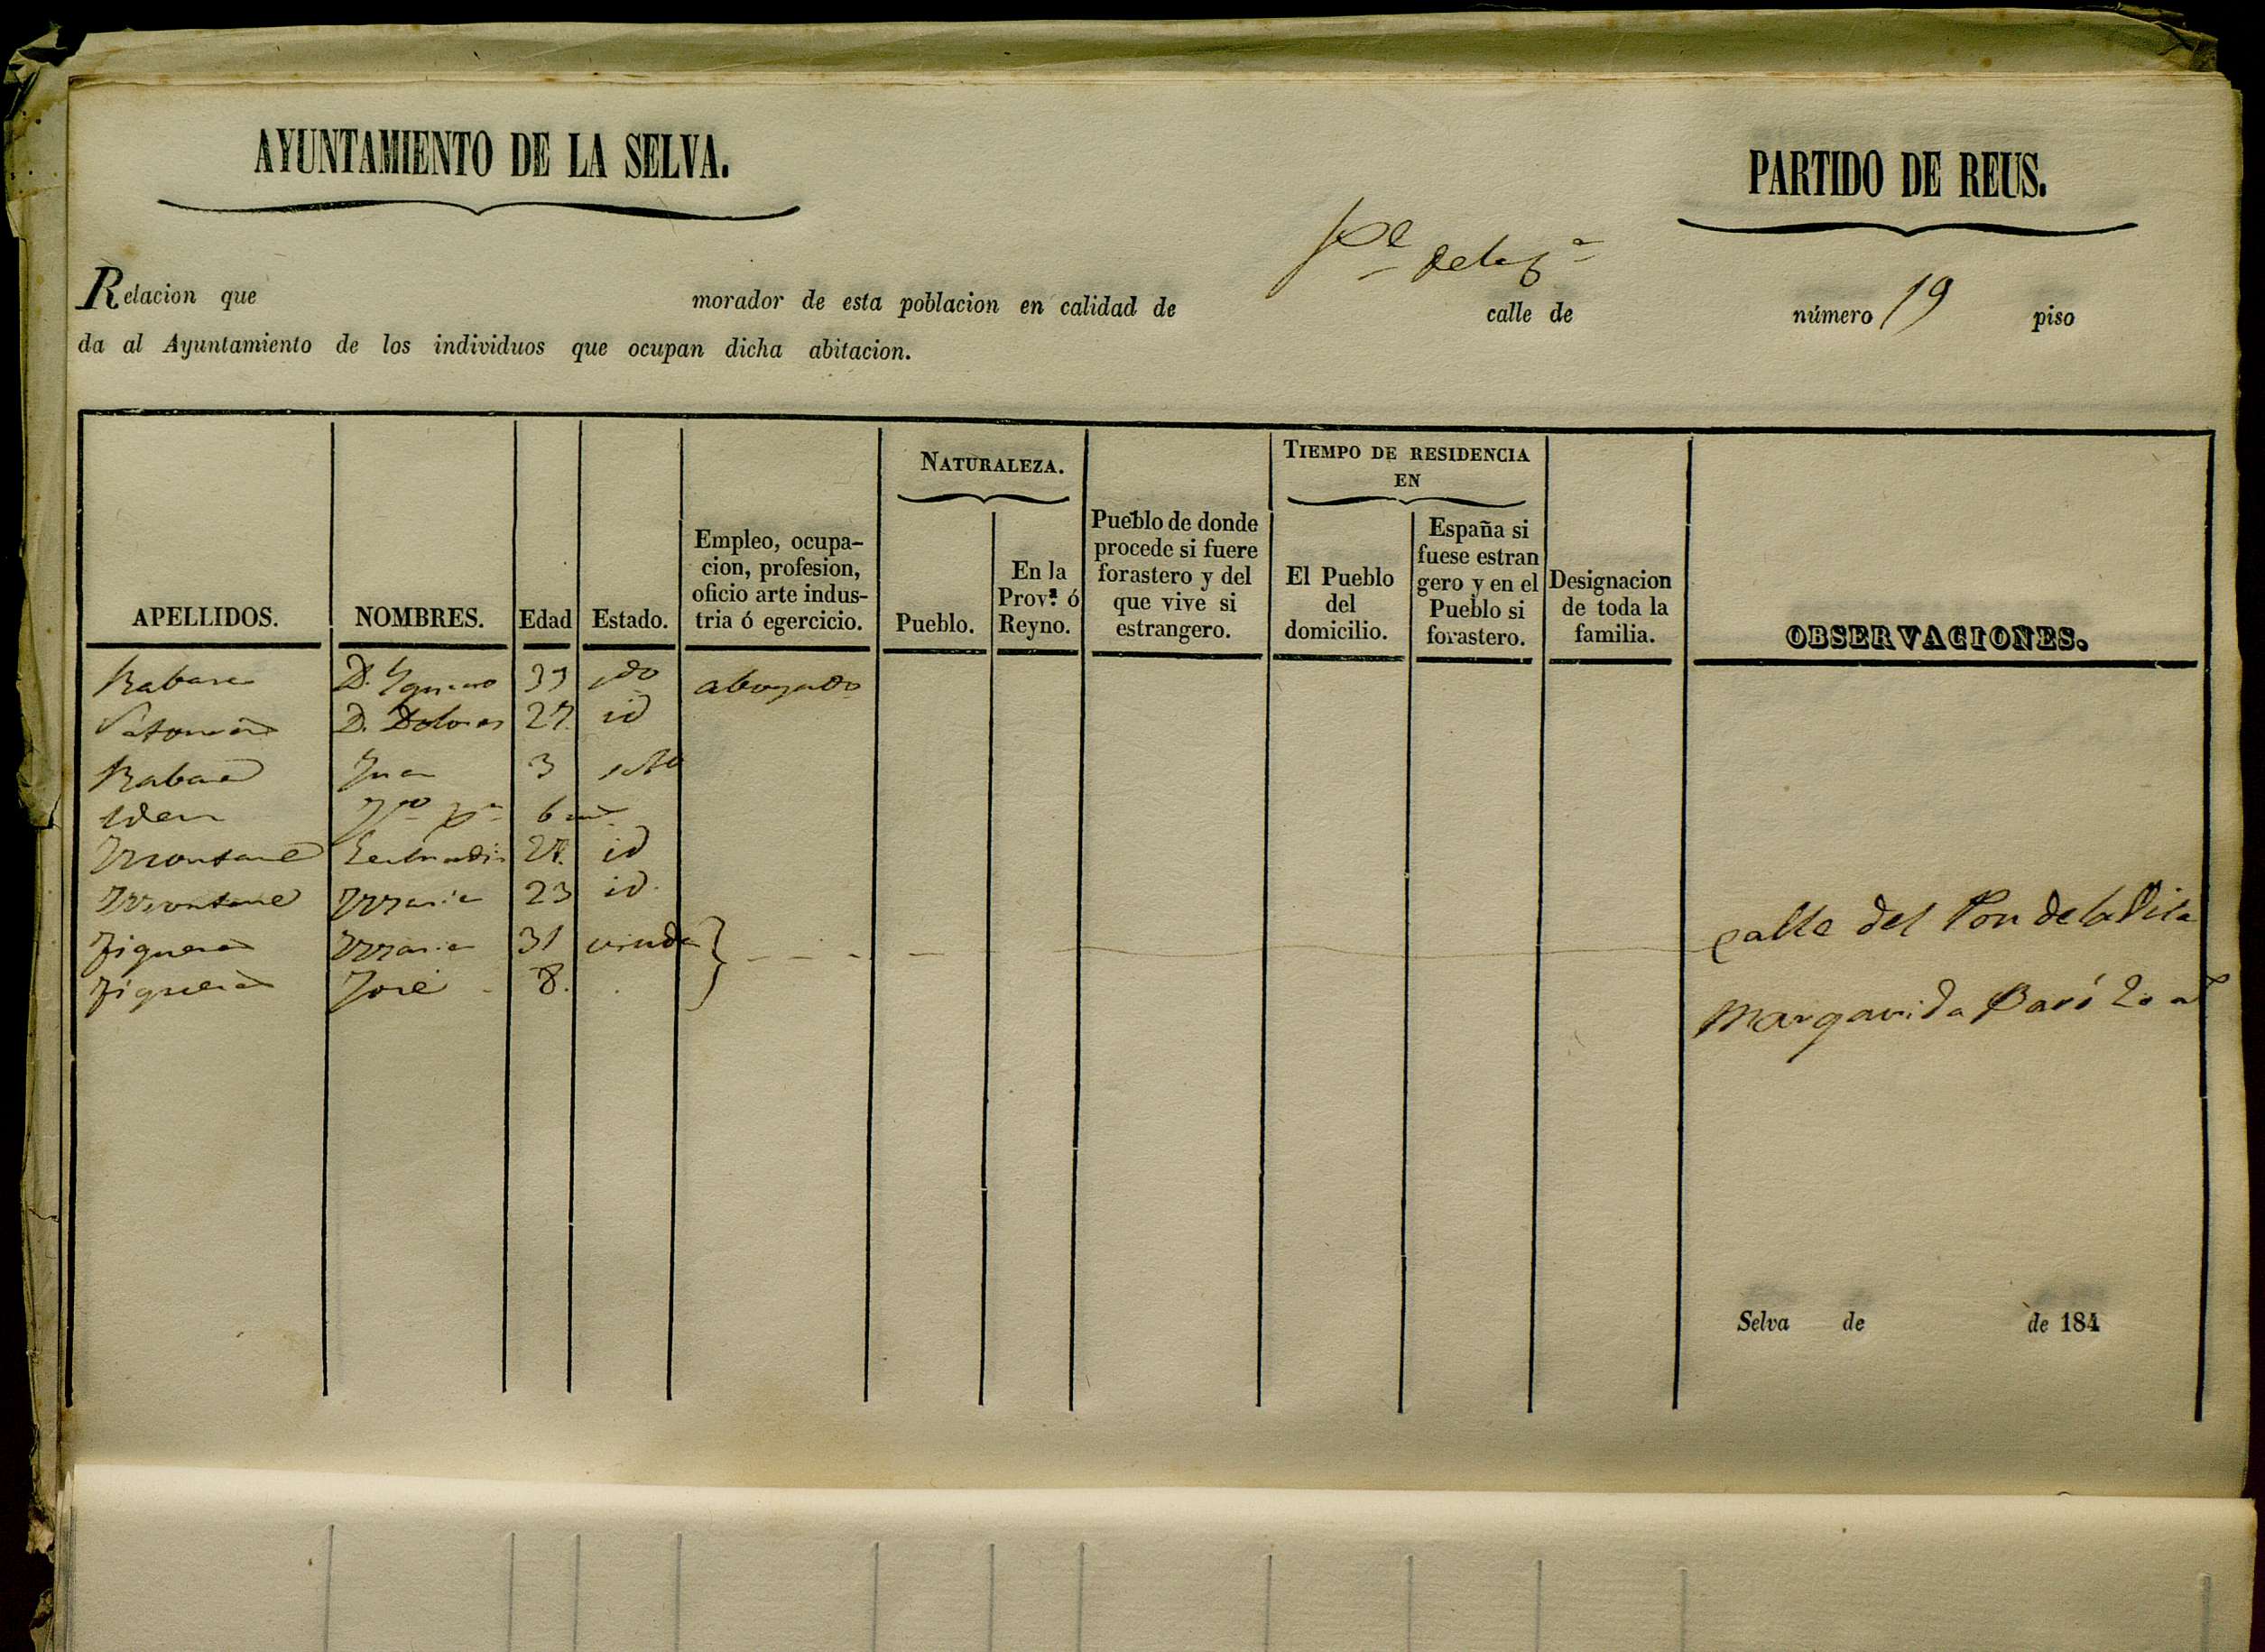 AYUNTAMIENTO DE LA SELVA.
PARTIDO DE REUS.
Relacion que morador de esta poblacion en calidad de calle de número 19 piso
da al Ayuntamiento de los individuos que ocupan dicha abitacion.
APELLIDOS. NOMBRES. Edad Estado. Empleo, ocupa-
cion, profesion,
oficio arte indus-
tria ó egercicio.
NATURALEZA.
Pueblo.
En la
Prov.ª ó
Reyno.
Pueblo de donde
procede si fuere
forastero y del
que vive si
estrangero.
TIEMPO DE RESIDENCIA
EN
El Pueblo
del
domicilio.
España si
fuese estran
gero y en el
Pueblo si
forastero.
Designacion
de toda la
familia.
OBSERVACIONES.
D. 33 abogado
D. Dolores 27 id
Juan 3
Idem 6
Montané 27. id
Montané Maria 23 id.
Figueras Maria 31 viuda
Figueras José 8.
calle del Pou de la Vila
Margarida Baró
Selva de de 184